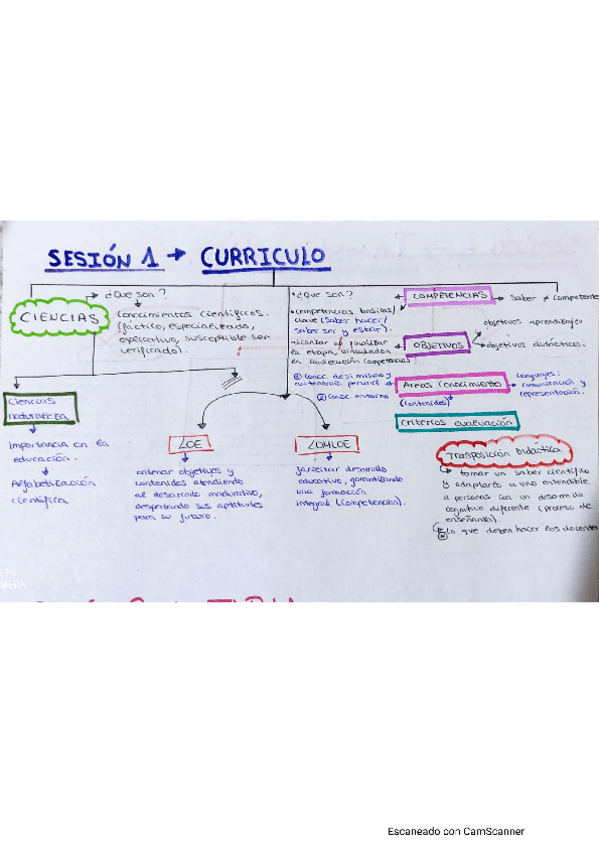 SESIÓN 1 → CURRICULO
CIENCIAS
→ ¿Que son?
Conocimientos científicos.
(fáctico, especializado,
explicativo, susceptible ser
verificado).
Ciencias
naturaleza
Importancia en la
educación.
Alfabetización
científica
LOE
ordenar objetivos y
contenidos atendiendo
al desarrollo madurativo,
despertando sus aptitudes
para su futuro.
LOMLOE
garantizar desarrollo
educativo, garantizando
una formación
integral (competencias).
• ¿Que son?
• competencias basicas/
clave (saber hacer/
saber ser y estar).
alcanzar al finalizar
la etapa, vinculadas
en consecución competencias
① Conoc. de si mismo y
autonomía personal
② Conoc. entorno
COMPETENCIAS → Saber ≠ Competente
OBJETIVOS
objetivos aprendizajes
objetivos didácticos.
Areas conocimiento
(contenidos)
Lenguajes:
comunicación y
representación.
criterios evaluación
Trasposición Didáctica
↳ tomar un saber científico
y adaptarlo a uno entendible
a personas con un desarrollo
cognitivo diferente (proceso de
enseñanza).
lo que deben hacer los docentes
Escaneado con CamScanner